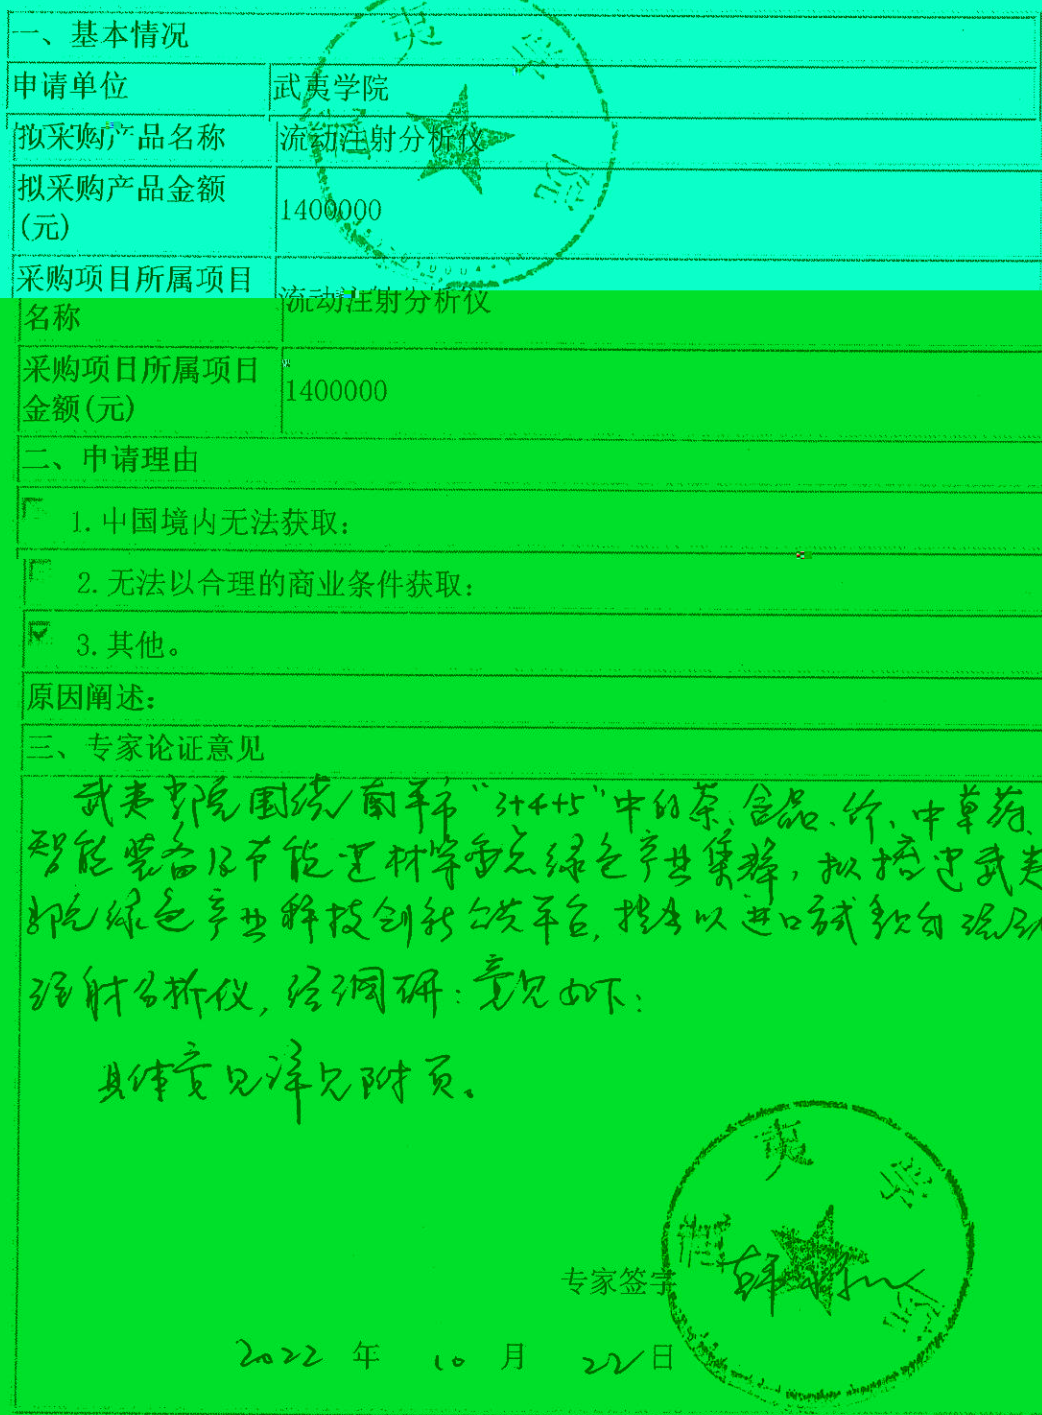 一、基本情况
申请单位 武夷学院
拟采购产品名称 流动注射分析仪
拟采购产品金额
(元) 1400000
采购项目所属项目
名称 流动注射分析仪
采购项目所属项目
金额(元) 1400000
二、申请理由
1.中国境内无法获取:
2.无法以合理的商业条件获取:
3.其他。
原因阐述:
三、专家论证意见
武夷学院围绕南平市“3+4+5”中的茶、食品、竹、中草药、
智能装备及节能建材等重点绿色产业集群,拟搭建武夷
学院绿色产业科技创新公共平台,提出以进口方式采购流动
注射分析仪,经调研:意见如下:
具体意见详见附页。
武夷学院
专家签字
2022 年 10 月 22 日